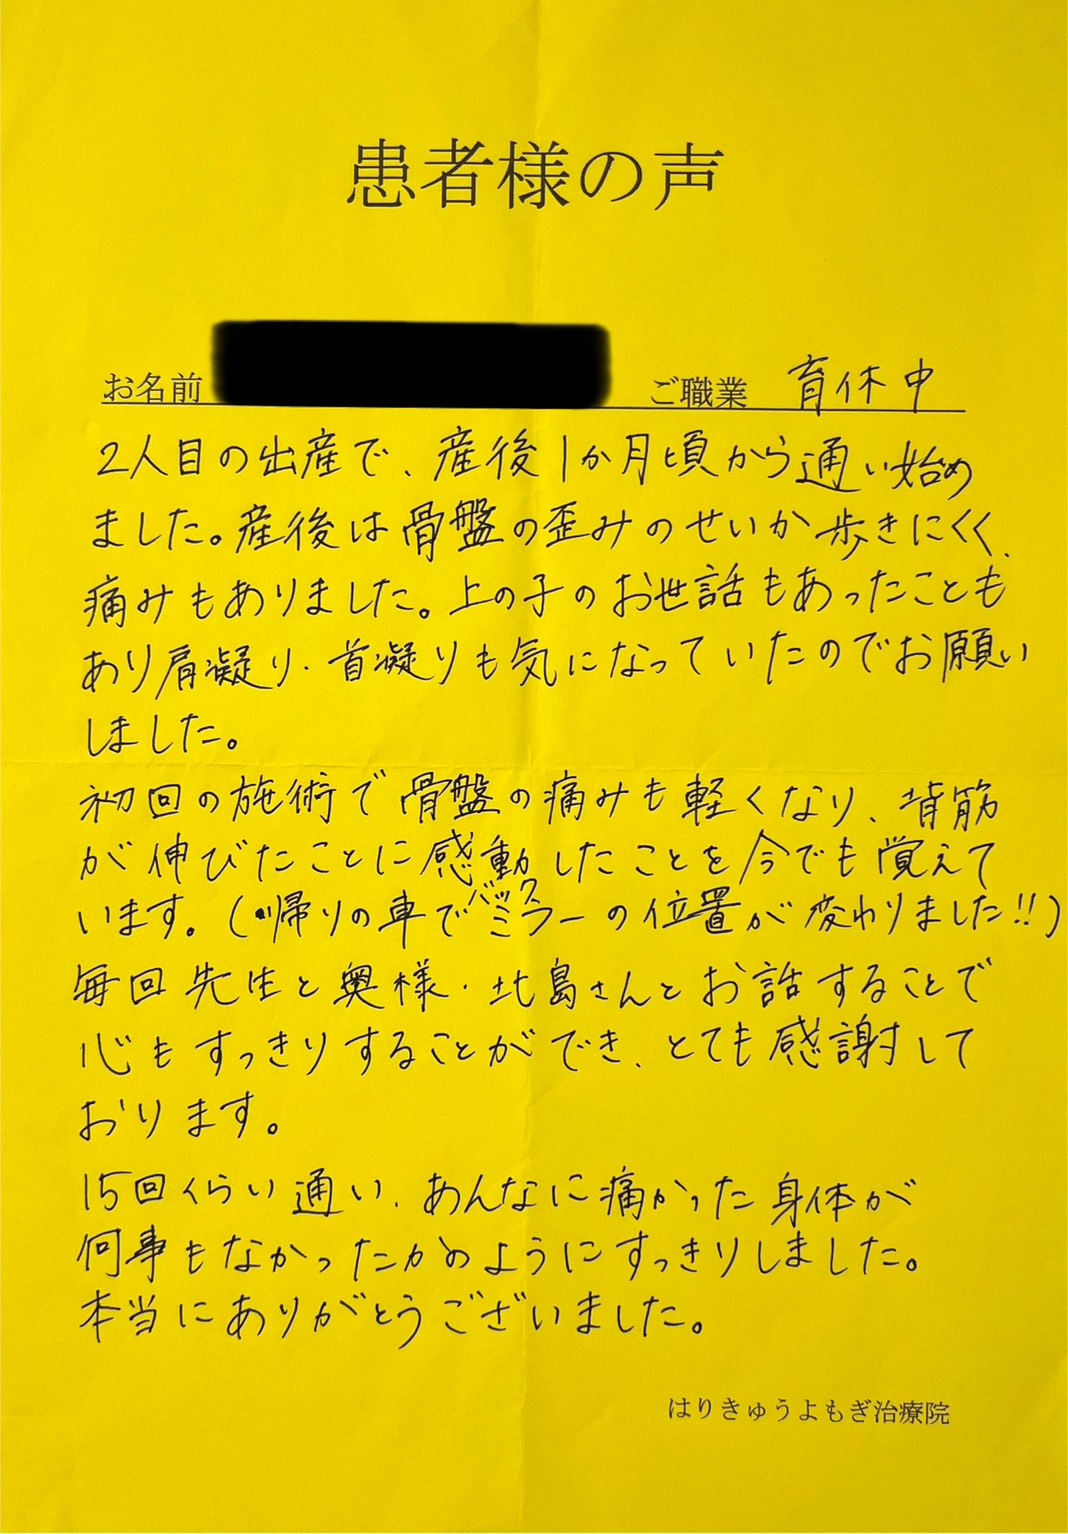 患者様の声
お名前 ご職業 育休中
2人目の出産で、産後1か月頃から通い始め
ました。産後は骨盤の歪みのせいか歩きにくく、
痛みもありました。上の子のお世話もあったことも
あり肩凝り・首凝りも気になっていたのでお願い
しました。
初回の施術で骨盤の痛みも軽くなり、背筋
が伸びたことに感動したことを今でも覚えて
います。(帰りの車でバックミラーの位置が変わりました!!)
毎回先生と奥様・北島さんとお話することで
心もすっきりすることができ、とても感謝して
おります。
15回くらい通い、あんなに痛かった身体が
何事もなかったかのようにすっきりしました。
本当にありがとうございました。
はりきゅうよもぎ治療院